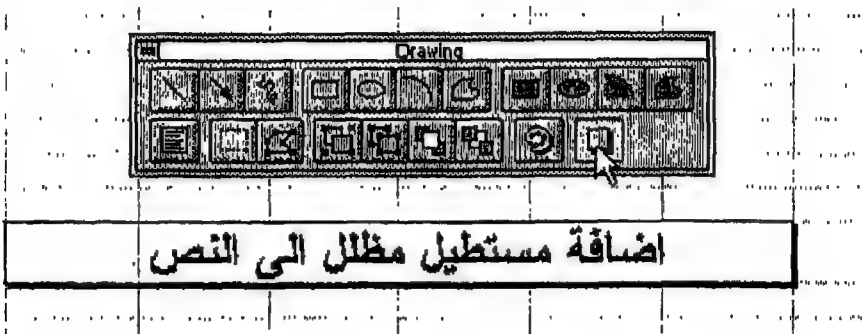 Drawing
اضافة مستطيل مظلل الى النص